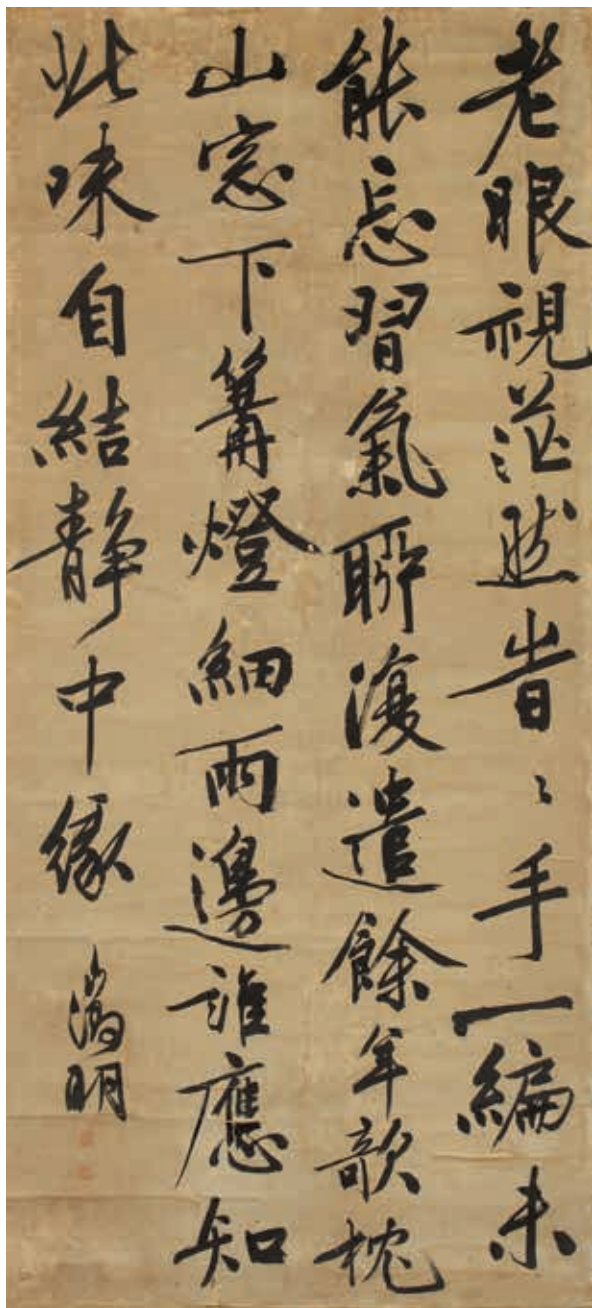 老眼視茫然旹〻手一編未
能忘習氣聊復遣餘年欹枕
山窓下篝燈細雨邊誰應知
此味自結静中緣 徵明